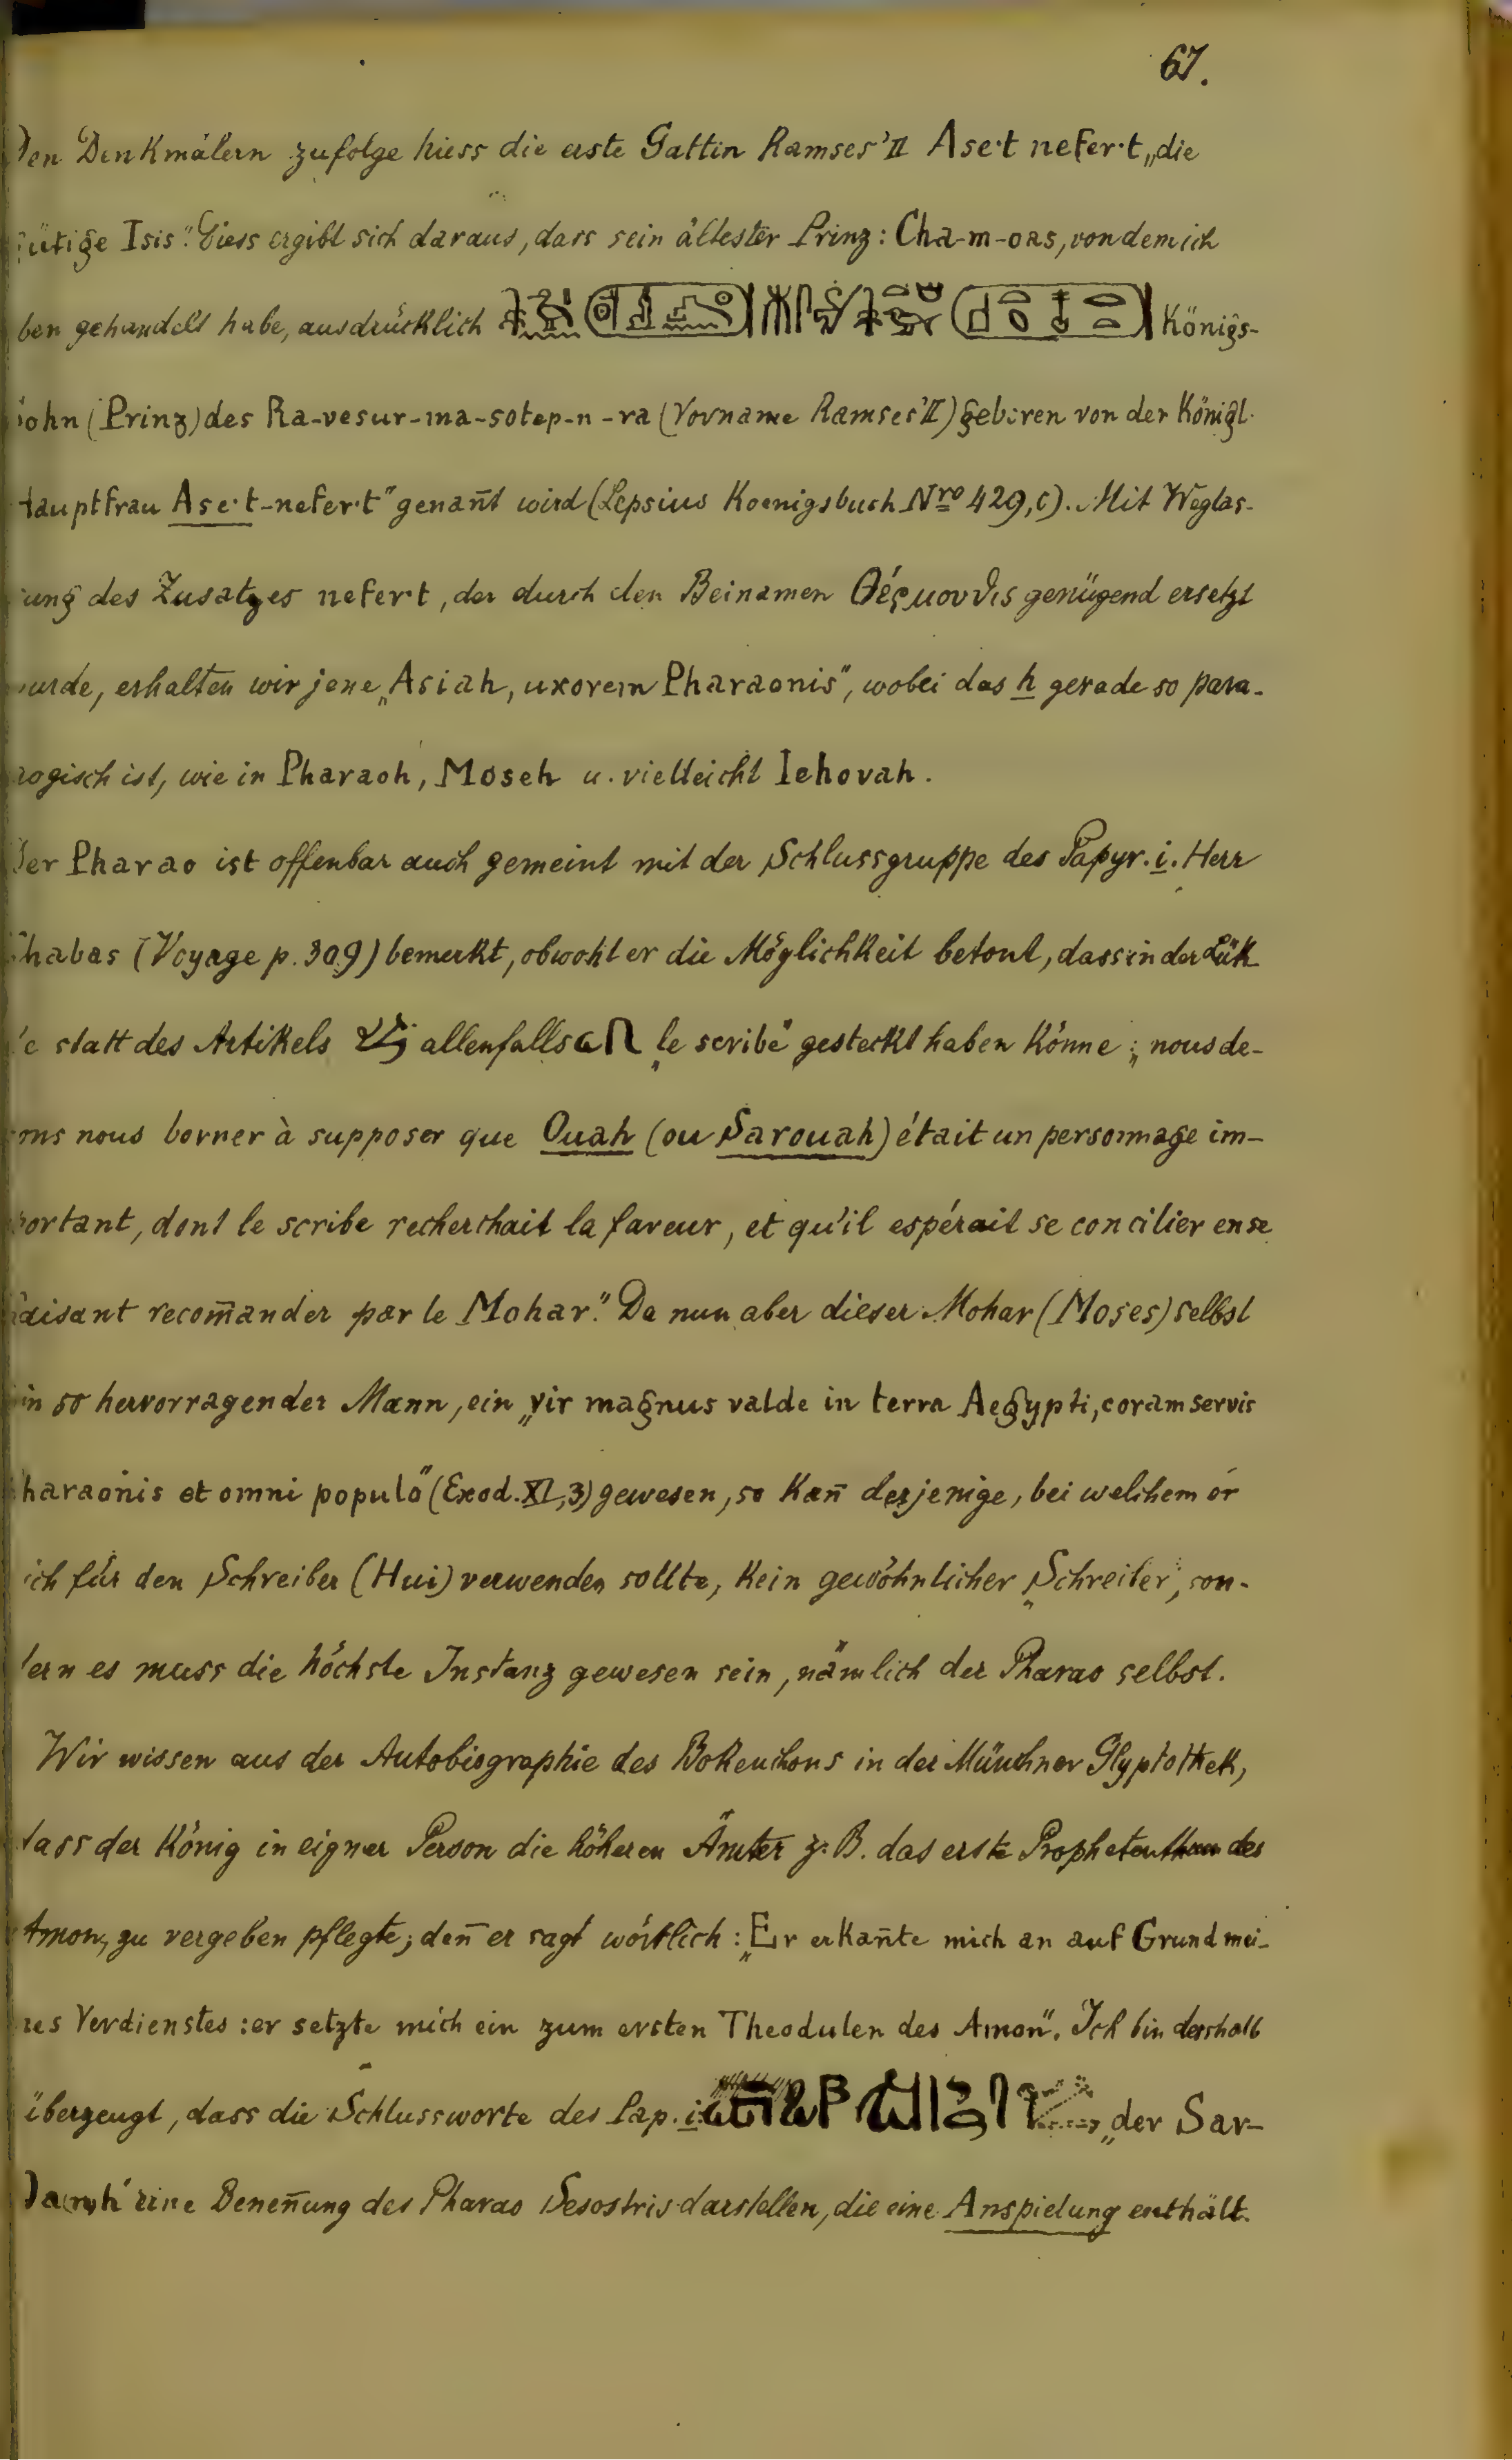 67.
Den Denkmälern zufolge hiess die erste Gattin Ramses' II Ase·t nefer·t „die
gütige Isis". Diess ergibt sich daraus, dass sein ältester Prinz: Cha-m-oas, von dem ich
ben gehandelt habe, ausdrücklich Königs-
sohn (Prinz) des Ra-vesur-ma-sotep-n-ra (Vorname Ramses' II) geboren von der Königl.
Hauptfrau Ase·t-nefer·t" genan̄t wird (Lepsius Koenigsbuch Nro 429,c). Mit Weglas-
sung des Zusatzes nefert, der durch den Beinamen Θέρμουθις genügend ersetzt
wurde, erhalten wir jene „Asiah, uxorem Pharaonis", wobei das h gerade so para-
gogisch ist, wie in Pharaoh, Moseh u. vielleicht Iehovah.
Der Pharao ist offenbar auch gemeint mit der Schlussgruppe des Papyr. i. Herr
Chabas (Voyage p. 309) bemerkt, obwohl er die Möglichkeit betont, dass in der Lük
ke statt des Artikels allenfalls „le scribe" gesteckt haben könne: „nous de-
vons nous borner à supposer que Ouah (ou Sarouah) était un personnage im-
portant, dont le scribe recherchait la faveur, et qu'il espérait se concilier en se
faisant recom̄ander par le Mohar." Da nun aber dieser Mohar (Moses) selbst
ein so hervorragender Mann, ein „vir magnus valde in terra Aegypti, coram servis
Pharaonis et omni populo" (Exod. XI,3) gewesen, so kan̄ derjenige, bei welchem er
sich für den Schreiber (Hui) verwenden sollte, kein gewöhnlicher „Schreiber", son-
dern es muss die höchste Instanz gewesen sein, nämlich der Pharao selbst.
Wir wissen aus der Autobiographie des Bokenchons in der Münchner Glyptothek,
dass der König in eigner Person die höheren Ämter z. B. das erste Prophetenthum des
Amon, zu vergeben pflegte; den̄ er sagt wörtlich: „Er erkan̄te mich an auf Grund mei-
nes Verdienstes: er setzte mich ein zum ersten Theodulen des Amon". Ich bin desshalb
überzeugt, dass die Schlussworte des Pap. i: „der Sar-
eine Benen̄ung des Pharao Sesostris darstellen, die eine Anspielung enthält.